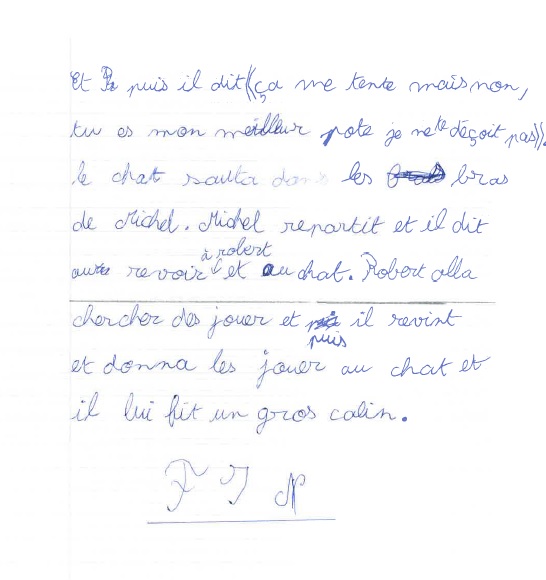 Et puis il dit «ça me tente mais non,
tu es mon meilleur pote je ne te déçoit pas».
le chat sauta dans les bras
de Michel. Michel repartit et il dit
au revoir à robert et au chat. Robert alla
chercher des jouer et puis il revint
et donna les jouer au chat et
il lui fit un gros calin.
FIN